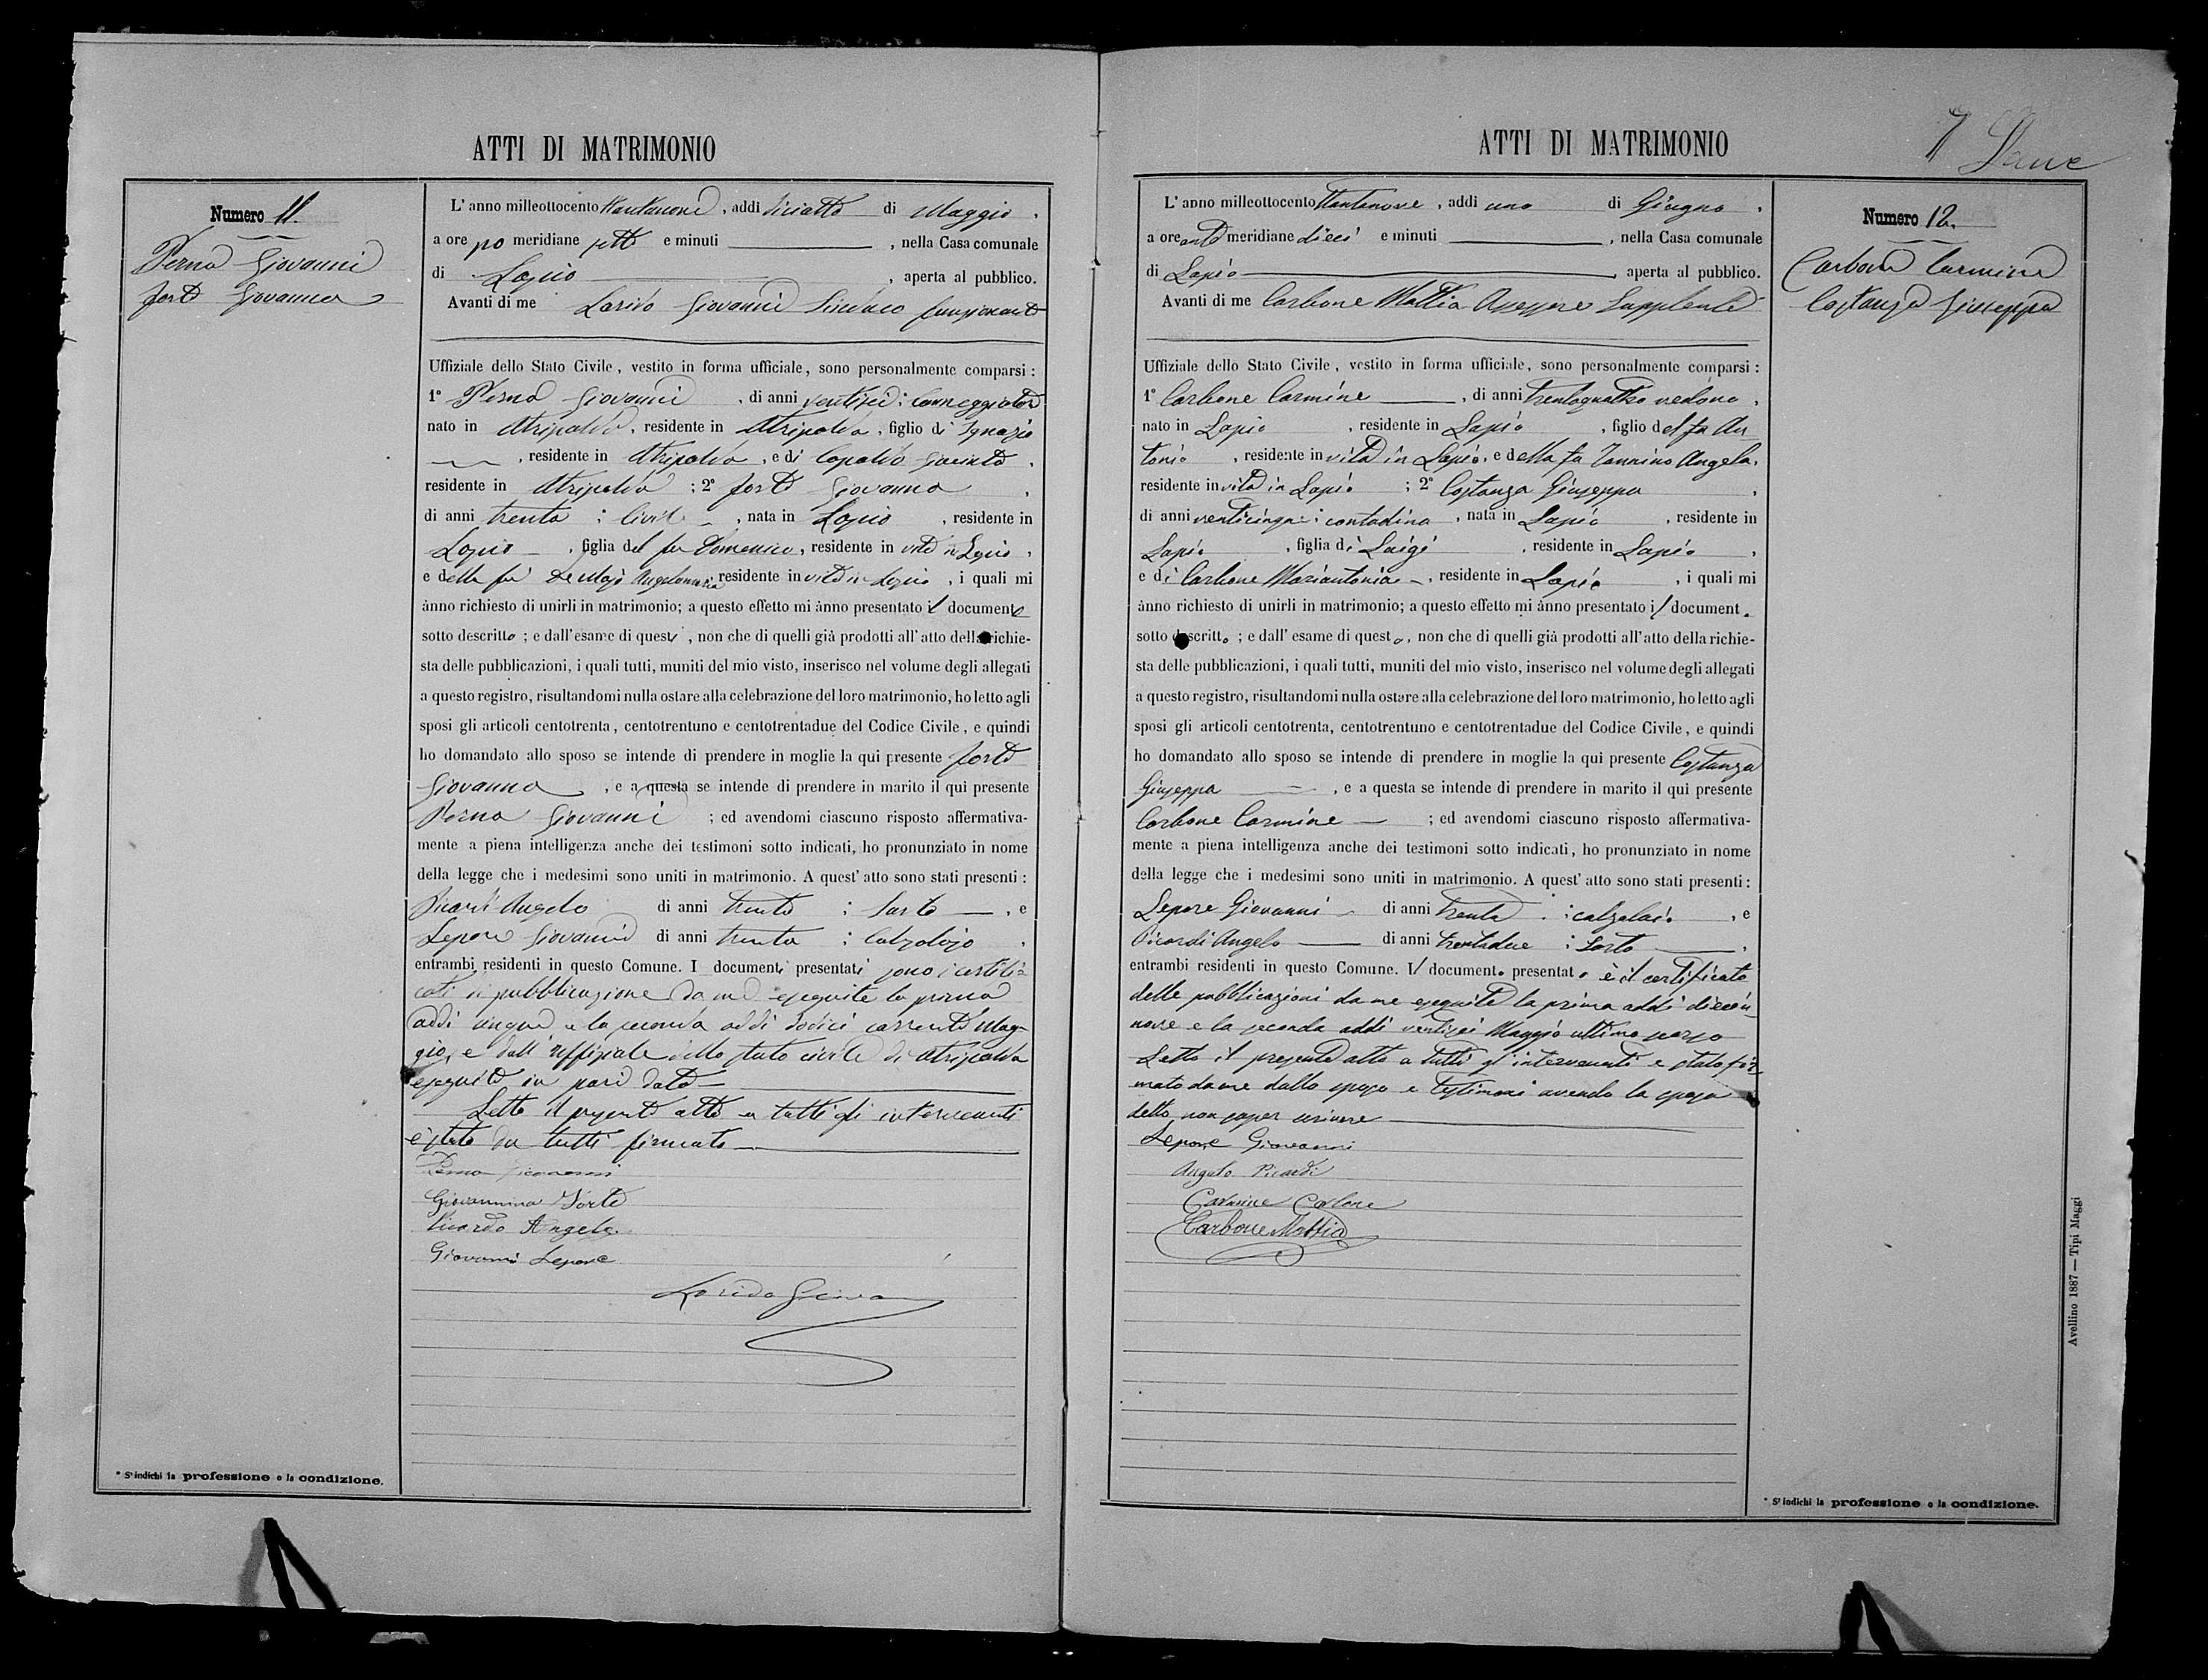 ATTI DI MATRIMONIO
Numero 11.
Perna Giovanni
Forte Giovanna
L' anno milleottocento ottantanove , addì diciotto di Maggio ,
a ore po meridiane sette e minuti , nella Casa comunale
di Lapio , aperta al pubblico.
Avanti di me Giovanni Sindaco funzionante
Uffiziale dello Stato Civile , vestito in forma ufficiale , sono personalmente comparsi :
1º Perna Giovanni , di anni ventisei ;
nato in Atripalda , residente in Atripalda , figlio di Ignazio
, residente in Atripalda , e di Capaldo ,
residente in Atripalda ; 2º Forte Giovanna ,
di anni trenta ; Civile , nata in Lapio , residente in
Lapio , figlia del fu Domenico , residente in vita in Lapio ,
e della fu Angelamaria residente in vita in Lapio , i quali mi
ànno richiesto di unirli in matrimonio; a questo effetto mi ànno presentato i documenti
sotto descritto ; e dall' esame di questi , non che di quelli già prodotti all' atto della richie-
sta delle pubblicazioni, i quali tutti, muniti del mio visto, inserisco nel volume degli allegati
a questo registro, risultandomi nulla ostare alla celebrazione del loro matrimonio, ho letto agli
sposi gli articoli centotrenta , centotrentuno e centotrentadue del Codice Civile , e quindi
ho domandato allo sposo se intende di prendere in moglie la qui presente Forte
Giovanna , e a questa se intende di prendere in marito il qui presente
Perna Giovanni ; ed avendomi ciascuno risposto affermativa-
mente a piena intelligenza anche dei testimoni sotto indicati, ho pronunziato in nome
della legge che i medesimi sono uniti in matrimonio. A quest' atto sono stati presenti :
Picardi Angelo di anni trenta ; Sarto , e
Lepore Giovanni di anni trenta ; Calzolajo ,
entrambi residenti in questo Comune. I documenti presentati sono i certifi-
cati di pubblicazione da me eseguite la prima
addì cinque e la seconda addì dodici corrente Mag-
gio, e dall' uffiziale dello stato civile di Atripalda
eseguite in pari data
Letto il presente atto a tutti gli intervenuti
è stato da tutti firmato
Perna Giovanni
Giovannina Forte
Picardo Angelo
Giovanni Lepore
* Si indichi la professione o la condizione.
ATTI DI MATRIMONIO
7
Numero 12.
Carbone Carmine
Costanza Giuseppa
L' anno milleottocento ottantanove , addì uno di Giugno ,
a ore ante meridiane dieci e minuti , nella Casa comunale
di Lapio , aperta al pubblico.
Avanti di me Carbone Mattia Assessore Supplente
Uffiziale dello Stato Civile , vestito in forma ufficiale , sono personalmente comparsi :
1º Carbone Carmine , di anni trentaquattro vedovo ,
nato in Lapio , residente in Lapio , figlio del fu An
tonio , residente in vita in Lapio, e della fu Iannino Angela,
residente in vita in Lapio ; 2º Costanza Giuseppa ,
di anni venticinque ; contadina , nata in Lapio , residente in
Lapio , figlia di Luigi , residente in Lapio ,
e di Carbone Mariantonia , residente in Lapio , i quali mi
ànno richiesto di unirli in matrimonio; a questo effetto mi ànno presentato il documento
sotto descritto ; e dall' esame di questo , non che di quelli già prodotti all' atto della richie-
sta delle pubblicazioni, i quali tutti, muniti del mio visto, inserisco nel volume degli allegati
a questo registro, risultandomi nulla ostare alla celebrazione del loro matrimonio, ho letto agli
sposi gli articoli centotrenta, centotrentuno e centotrentadue del Codice Civile , e quindi
ho domandato allo sposo se intende di prendere in moglie la qui presente Costanza
Giuseppa , e a questa se intende di prendere in marito il qui presente
Carbone Carmine ; ed avendomi ciascuno risposto affermativa-
mente a piena intelligenza anche dei testimoni sotto indicati, ho pronunziato in nome
della legge che i medesimi sono uniti in matrimonio. A quest' atto sono stati presenti :
Lepore Giovanni di anni trenta ; calzolaio , e
Picardi Angelo di anni trentadue ; Sarto ,
entrambi residenti in questo Comune. Il documento presentato è il certificato
delle pubblicazioni da me eseguite la prima addì dician
nove e la seconda addì ventisei Maggio ultimo scorso
Letto il presente atto a tutti gl' intervenuti è stato fir
mato da me dallo sposo e testimoni avendo la sposa
detto non saper scrivere
Lepore Giovanni
Angelo Picardi
Carmine Carbone
Carbone Mattia
* Si indichi la professione o la condizione.
Avellino 1887 — Tipi Maggi